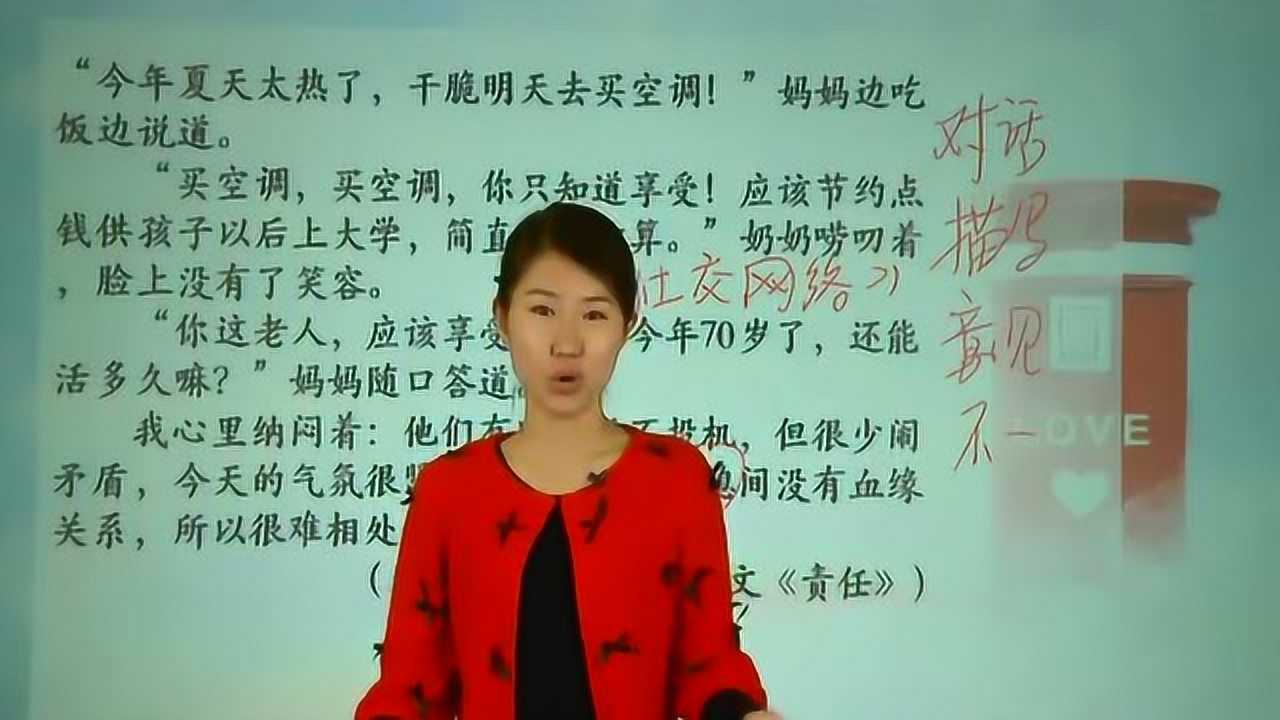 “今年夏天太热了，干脆明天去买空调！”妈妈边吃
饭边说道。
“买空调，买空调，你只知道享受！应该节约点
钱供孩子以后上大学，简直 算。”奶奶唠叨着
，脸上没有了笑容。
“你这老人，应该享受 今年70岁了，还能
活多久嘛？”妈妈随口答道
我心里纳闷着：他们 不投机，但很少闹
矛盾，今天的气氛很 间没有血缘
关系，所以很难相处
（ 文《责任》）
社交网络
对话
描写
意见
不一
LOVE